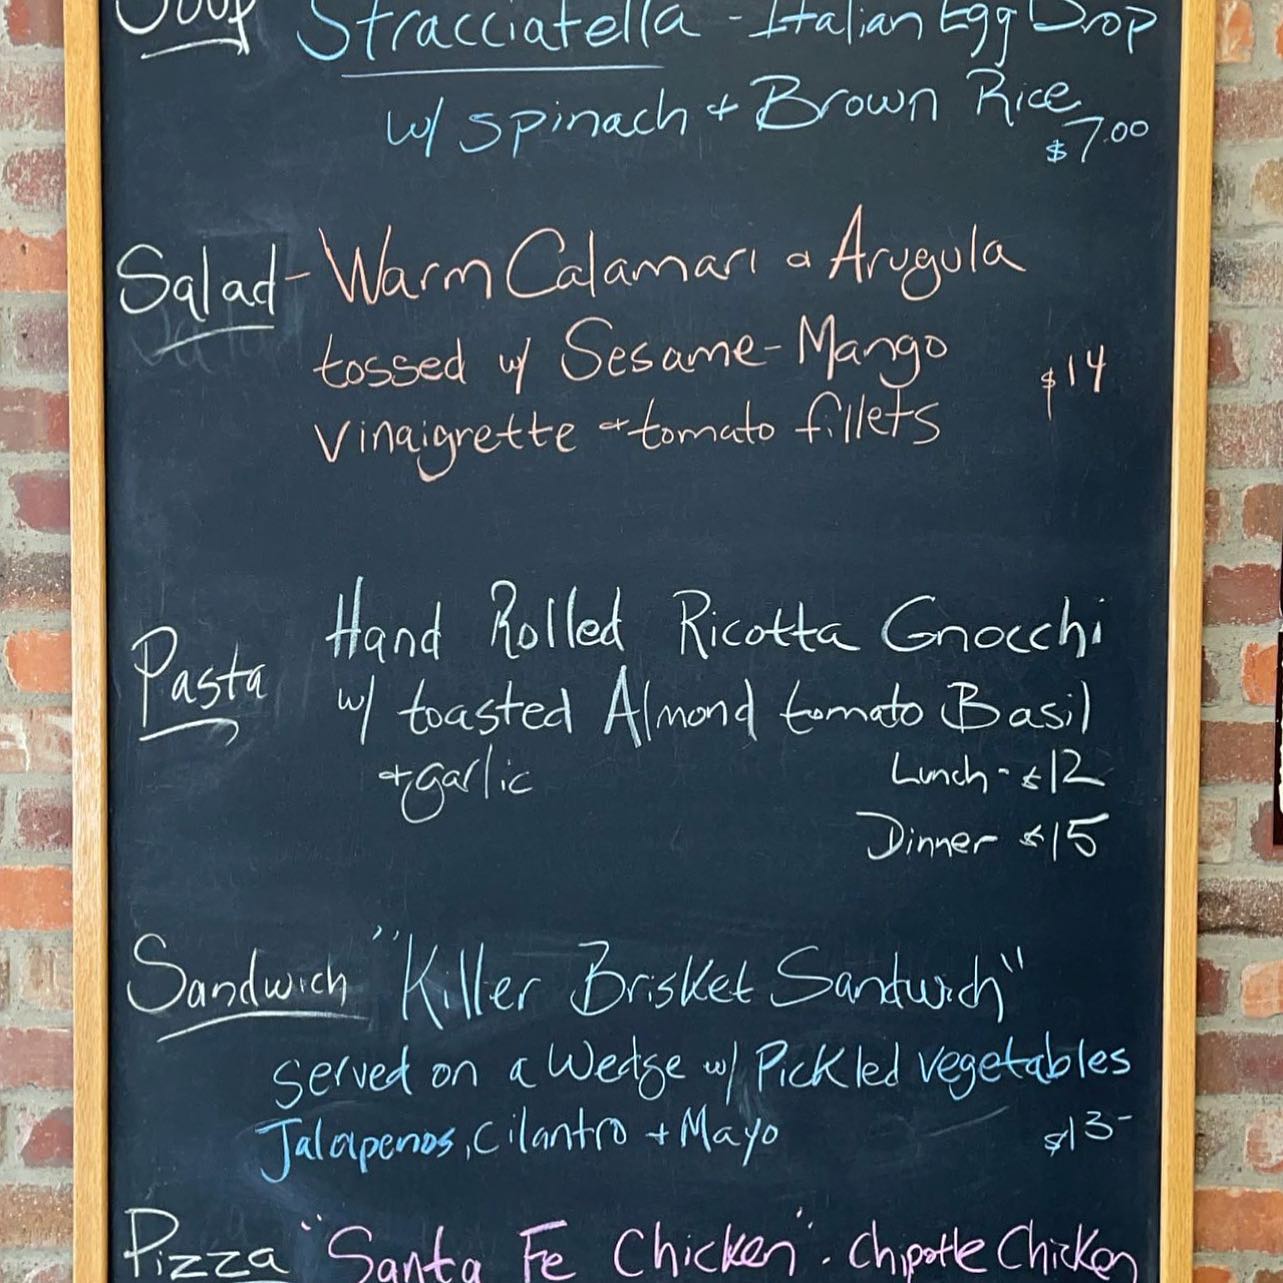 Soup Stracciatella - Italian Egg Drop
w/ spinach + Brown Rice
$7.00
Salad - Warm Calamari & Arugula
tossed w/ Sesame-Mango
$14
vinaigrette + tomato fillets
Hand Rolled Ricotta Gnocchi
Pasta
w/ toasted Almond tomato Basil
+ garlic
Lunch - $12
Dinner $15
Sandwich "Killer Brisket Sandwich"
served on a Wedge w/ Pickled vegetables
Jalapenos, Cilantro + Mayo $13-
Pizza "Santa Fe Chicken". Chipotle Chicken